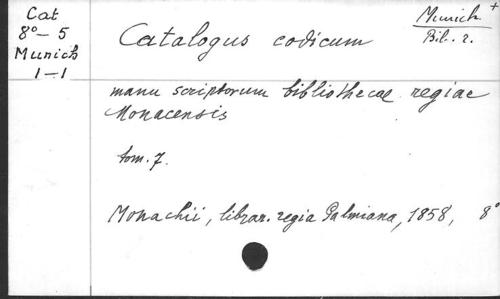 Cat
8°-5
Munich
1-1
Munich +
Bib. 2.
Catalogus codicum
manu scriptorum bibliothecae regiae
Monacensis
tom. 7.
Monachii, librar. regia Palmiana, 1858, 8°